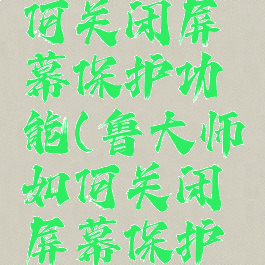 何关闭屏
幕保护功
能(鲁大师
如何关闭
屏幕保护